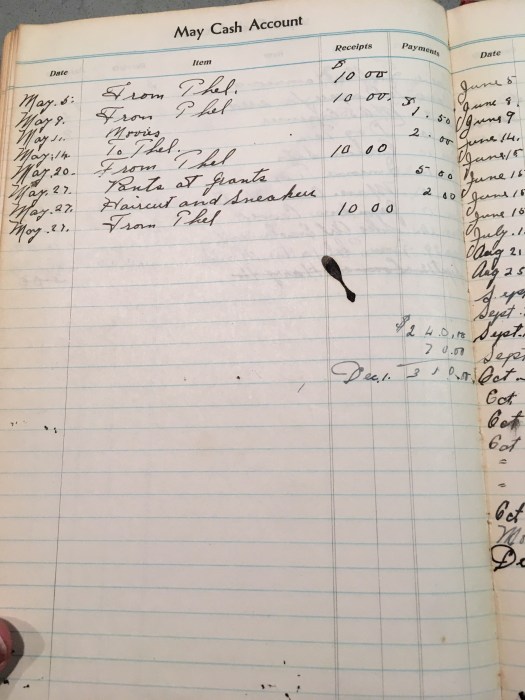 May Cash Account
Date Item Receipts Payments Date
May. 5: From Phel. $ 10 00
May 9. From Phel 10 00. $
Movies 1.50
May.14. To Phel. 2.00
May.20. From Phel 10 00
May.27. Pants at Grants 5 00
May.27. Haircut and Sneakers 2 00
May.27. From Phel 10 00
$240.00
70.00
Dec.1. 310.00
June 5
June 8.
June 9
June 14.
June 15
June 15
June
June
July.
Aug 21
Aug 25
Sept.
Sept.
Sept.
Oct
Oct
Oct
Oct
"
"
Oct